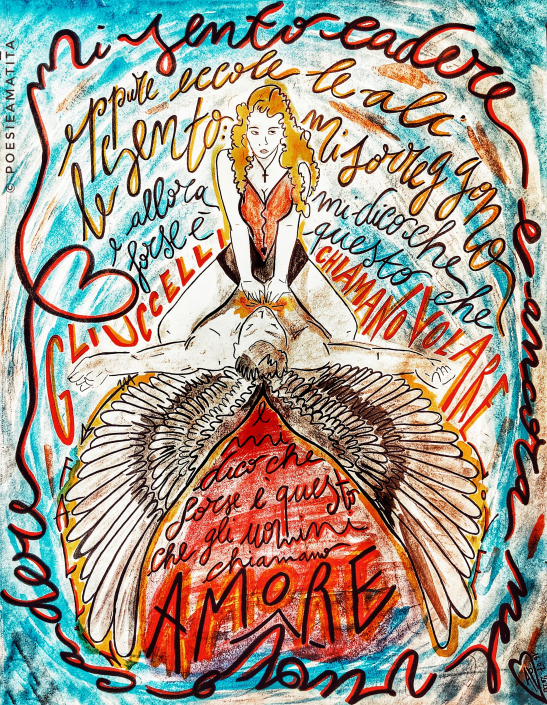 © POESIEAMATITA
mi sento cadere
e ancora nel
vuoto
cadere
eppure eccole le ali
le sento: mi sorreggono
e allora mi dico che
forse è questo che
GLI UCCELLI CHIAMANO VOLARE
e
mi
dico che
forse è questo
che gli uomini
chiamano
AMORE